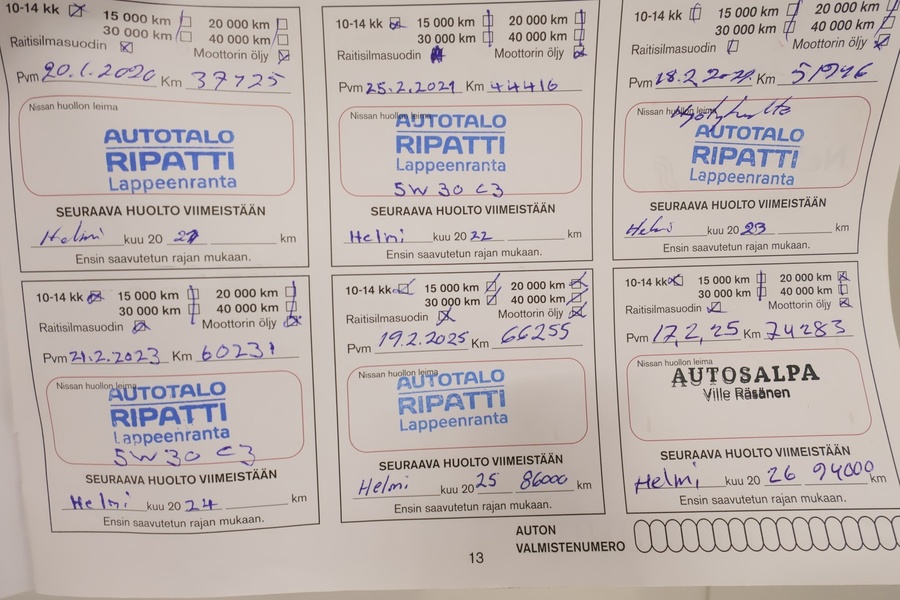 10-14 kk 15 000 km 20 000 km
30 000 km 40 000 km
Raitisilmasuodin Moottorin öljy
Pvm 20.1.2020 Km 37725
Nissan huollon leima
AUTOTALO
RIPATTI
Lappeenranta
SEURAAVA HUOLTO VIIMEISTÄÄN
Helmi kuu 20 21 km
Ensin saavutetun rajan mukaan.
10-14 kk 15 000 km 20 000 km
30 000 km 40 000 km
Raitisilmasuodin Moottorin öljy
Pvm 25.2.2021 Km 44416
Nissan huollon leima
AUTOTALO
RIPATTI
Lappeenranta
5W30 C3
SEURAAVA HUOLTO VIIMEISTÄÄN
Helmi kuu 20 22 km
Ensin saavutetun rajan mukaan.
10-14 kk 15 000 km 20 000 km
30 000 km 40 000 km
Raitisilmasuodin Moottorin öljy
Pvm 18.2. Km 51946
Nissan huollon leima
AUTOTALO
RIPATTI
Lappeenranta
SEURAAVA HUOLTO VIIMEISTÄÄN
Helmi kuu 20 23 km
Ensin saavutetun rajan mukaan.
10-14 kk 15 000 km 20 000 km
30 000 km 40 000 km
Raitisilmasuodin Moottorin öljy
Pvm 21.2.2023 Km 60231
Nissan huollon leima
AUTOTALO
RIPATTI
Lappeenranta
5W30 C3
SEURAAVA HUOLTO VIIMEISTÄÄN
Helmi kuu 20 24 km
Ensin saavutetun rajan mukaan.
10-14 kk 15 000 km 20 000 km
30 000 km 40 000 km
Raitisilmasuodin Moottorin öljy
Pvm 19.2.2025 Km 66255
Nissan huollon leima
AUTOTALO
RIPATTI
Lappeenranta
SEURAAVA HUOLTO VIIMEISTÄÄN
Helmi kuu 20 25 86000 km
Ensin saavutetun rajan mukaan.
10-14 kk 15 000 km 20 000 km
30 000 km 40 000 km
Raitisilmasuodin Moottorin öljy
Pvm 17,2,25 Km 74283
Nissan huollon leima
AUTOSALPA
Ville Räsänen
SEURAAVA HUOLTO VIIMEISTÄÄN
Helmi kuu 20 26 94000 km
Ensin saavutetun rajan mukaan.
AUTON
VALMISTENUMERO
13